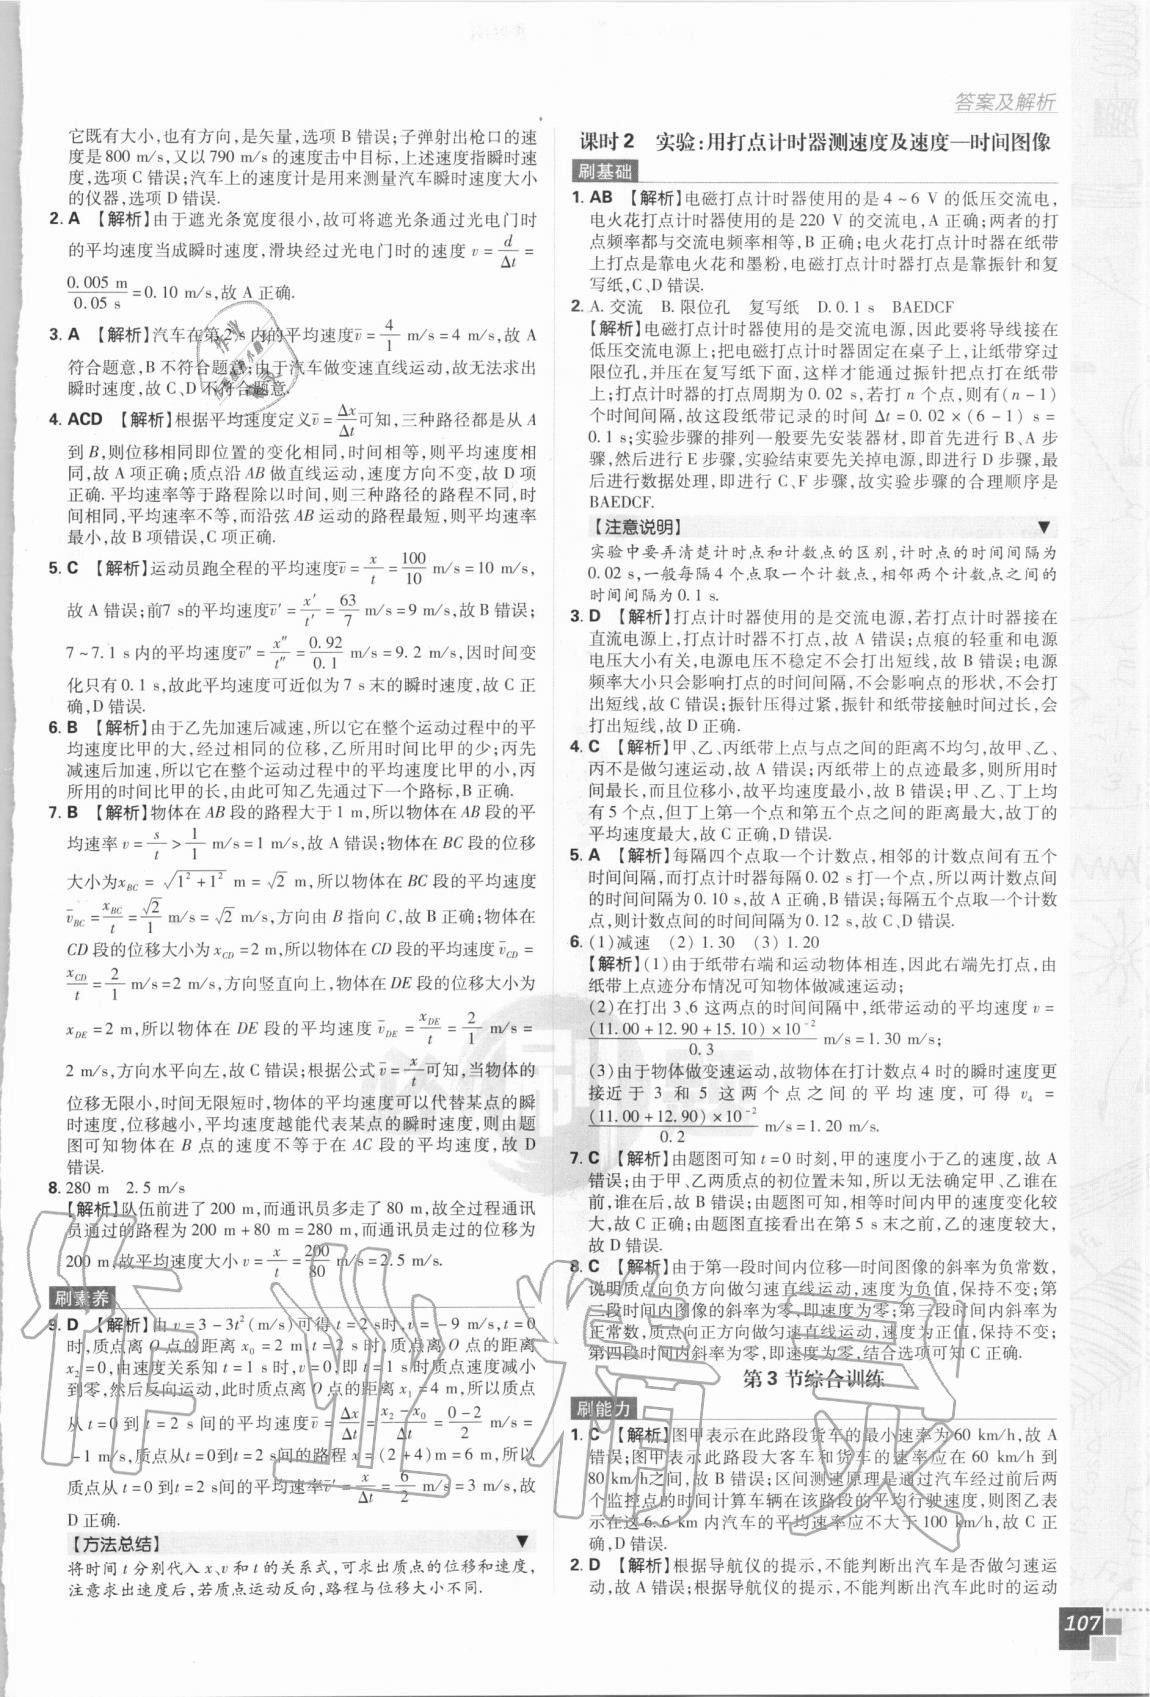 答案及解析
它既有大小,也有方向,是矢量,选项 B 错误;子弹射出枪口的速
度是 800 m/s,又以 790 m/s 的速度击中目标,上述速度指瞬时速
度,选项 C 错误;汽车上的速度计是用来测量汽车瞬时速度大小
的仪器,选项 D 错误.
2. A 【解析】由于遮光条宽度很小,故可将遮光条通过光电门时
的平均速度当成瞬时速度,滑块经过光电门时的速度 v = d/Δt =
0.005 m/0.05 s =0.10 m/s,故 A 正确.
3. A 【解析】汽车在第 2 s 内的平均速度 v̄ = 4/1 m/s = 4 m/s,故 A
符合题意,B 不符合题意;由于汽车做变速直线运动,故无法求出
瞬时速度,故 C、D 不符合题意.
4. ACD 【解析】根据平均速度定义 v̄ = Δx/Δt 可知,三种路径都是从 A
到 B,则位移相同即位置的变化相同,时间相等,则平均速度相
同,故 A 项正确;质点沿 AB 做直线运动,速度方向不变,故 D 项
正确.平均速率等于路程除以时间,则三种路径的路程不同,时
间相同,平均速率不等,而沿弦 AB 运动的路程最短,则平均速率
最小,故 B 项错误,C 项正确.
5. C 【解析】运动员跑全程的平均速度 v̄ = x/t = 100/10 m/s = 10 m/s,
故 A 错误;前7 s的平均速度 v̄′ = x′/t′ = 63/7 m/s = 9 m/s,故 B 错误;
7~7.1 s 内的平均速度 v̄″ = x″/t″ = 0.92/0.1 m/s = 9.2 m/s,因时间变
化只有 0.1 s,故此平均速度可近似为 7 s 末的瞬时速度,故 C 正
确,D 错误.
6. B 【解析】由于乙先加速后减速,所以它在整个运动过程中的平
均速度比甲的大,经过相同的位移,乙所用时间比甲的少;丙先
减速后加速,所以它在整个运动过程中的平均速度比甲的小,丙
所用的时间比甲的长,由此可知乙先通过下一个路标,B 正确.
7. B 【解析】物体在 AB 段的路程大于 1 m,所以物体在 AB 段的平
均速率 v = s/t > 1/1 m/s = 1 m/s,故 A 错误;物体在 BC 段的位移
大小为 x_BC = √(1²+1²) m = √2 m,所以物体在 BC 段的平均速度
v̄_BC = x_BC/t = √2/1 m/s = √2 m/s,方向由 B 指向 C,故 B 正确;物体在
CD 段的位移大小为 x_CD = 2 m,所以物体在 CD 段的平均速度 v̄_CD =
x_CD/t = 2/1 m/s = 2 m/s,方向竖直向上,物体在 DE 段的位移大小为
x_DE = 2 m,所以物体在 DE 段的平均速度 v̄_DE = x_DE/t = 2/1 m/s =
2 m/s,方向水平向左,故 C 错误;根据公式 v̄ = x/t 可知,当物体的
位移无限小,时间无限短时,物体的平均速度可以代替某点的瞬
时速度,位移越小,平均速度越能代表某点的瞬时速度,则由题
图可知物体在 B 点的速度不等于在 AC 段的平均速度,故 D
错误.
8. 280 m 2.5 m/s
【解析】队伍前进了 200 m,而通讯员多走了 80 m,故全过程通讯
员通过的路程为 200 m + 80 m = 280 m,而通讯员走过的位移为
200 m,故平均速度大小 v = x/t = 200/80 m/s = 2.5 m/s.
刷素养
9. D 【解析】由 v = 3 - 3t² (m/s) 可得 t = 2 s时,v = -9 m/s,t = 0
时,质点离 O 点的距离 x₀ = 2 m,t = 2 s 时,质点离 O 点的距离
x₂ = 0,由速度关系知 t = 1 s 时,v = 0,即 t = 1 s时质点速度减小
到零,然后反向运动,此时质点离 O 点的距离 x₁ = 4 m,所以质点
从 t = 0 到 t = 2 s 间的平均速度 v̄ = Δx/Δt = (x₂-x₀)/Δt = (0-2)/2 m/s =
-1 m/s,质点从t=0到t=2 s间的路程 x = (2+4) m = 6 m,所以
质点从 t = 0 到 t = 2 s间的平均速率 v̄′ = x/Δt = 6/2 m/s = 3 m/s,故
D 正确.
【方法总结】 ▼
将时间 t 分别代入 x、v 和 t 的关系式,可求出质点的位移和速度,
注意求出速度后,若质点运动反向,路程与位移大小不同.
课时 2 实验:用打点计时器测速度及速度—时间图像
刷基础
1. AB 【解析】电磁打点计时器使用的是 4~6 V 的低压交流电,
电火花打点计时器使用的是 220 V 的交流电,A 正确;两者的打
点频率都与交流电频率相等,B 正确;电火花打点计时器在纸带
上打点是靠电火花和墨粉,电磁打点计时器打点是靠振针和复
写纸,C、D 错误.
2. A. 交流 B. 限位孔 复写纸 D. 0.1 s BAEDCF
【解析】电磁打点计时器使用的是交流电源,因此要将导线接在
低压交流电源上;把电磁打点计时器固定在桌子上,让纸带穿过
限位孔,并压在复写纸下面,这样才能通过振针把点打在纸带
上;打点计时器的打点周期为 0.02 s,若打 n 个点,则有(n-1)
个时间间隔,故这段纸带记录的时间 Δt = 0.02 × (6-1) s =
0.1 s;实验步骤的排列一般要先安装器材,即首先进行 B、A 步
骤,然后进行 E 步骤,实验结束要先关掉电源,即进行 D 步骤,最
后进行数据处理,即进行 C、F 步骤,故实验步骤的合理顺序是
BAEDCF.
【注意说明】 ▼
实验中要弄清楚计时点和计数点的区别,计时点的时间间隔为
0.02 s,一般每隔 4 个点取一个计数点,相邻两个计数点之间的
时间间隔为 0.1 s.
3. D 【解析】打点计时器使用的是交流电源,若打点计时器接在
直流电源上,打点计时器不打点,故 A 错误;点痕的轻重和电源
电压大小有关,电源电压不稳定不会打出短线,故 B 错误;电源
频率大小只会影响打点的时间间隔,不会影响点的形状,不会打
出短线,故 C 错误;振针压得过紧,振针和纸带接触时间过长,会
打出短线,故 D 正确.
4. C 【解析】甲、乙、丙纸带上点与点之间的距离不均匀,故甲、乙、
丙不是做匀速运动,故 A 错误;丙纸带上的点迹最多,则所用时
间最长,而且位移小,故平均速度最小,故 B 错误;甲、乙、丁上均
有 5 个点,但丁上第一个点和第五个点之间的距离最大,故丁的
平均速度最大,故 C 正确,D 错误.
5. A 【解析】每隔四个点取一个计数点,相邻的计数点间有五个
时间间隔,而打点计时器每隔 0.02 s打一个点,所以两计数点间
的时间间隔为 0.10 s,故 A 正确,B 错误;每隔五个点取一个计数
点,则计数点间的时间间隔为 0.12 s,故 C、D 错误.
6. (1)减速 (2)1.30 (3)1.20
【解析】(1)由于纸带右端和运动物体相连,因此右端先打点,由
纸带上点迹分布情况可知物体做减速运动;
(2)在打出 3、6 这两点的时间间隔中,纸带运动的平均速度 v =
(11.00+12.90+15.10)×10⁻²/0.3 m/s = 1.30 m/s;
(3)由于物体做变速运动,故物体在打计数点 4 时的瞬时速度更
接近于 3 和 5 这两个点之间的平均速度,可得 v₄ =
(11.00+12.90)×10⁻²/0.2 m/s = 1.20 m/s.
7. C 【解析】由题图可知 t = 0 时刻,甲的速度小于乙的速度,故 A
错误;由于甲、乙两质点的初位置未知,所以无法确定甲、乙谁在
前,谁在后,故 B 错误;由题图可知,相等时间内甲的速度变化较
大,故 C 正确;由题图直接看出在第 5 s 末之前,乙的速度较大,
故 D 错误.
8. C 【解析】由于第一段时间内位移—时间图像的斜率为负常数,
说明质点向负方向做匀速直线运动,速度为负值,保持不变;第
二段时间内图像的斜率为零,即速度为零;第三段时间内斜率为
正常数,质点向正方向做匀速直线运动,速度为正值,保持不变;
第四段时间内斜率为零,即速度为零,结合选项可知 C 正确.
第 3 节综合训练
刷能力
1. C 【解析】图甲表示在此路段货车的最小速率为 60 km/h,故 A
错误;图甲表示此路段大客车和货车的速率应在 60 km/h 到
80 km/h之间,故 B 错误;区间测速原理是通过汽车经过前后两
个监控点的时间计算车辆在该路段的平均行驶速度,则图乙表
示在这 6.6 km 内汽车的平均速率应不大于 100 km/h,故 C
正确,D 错误.
2. D 【解析】根据导航仪的提示,不能判断出汽车是否做匀速运
动,故 A 错误;根据导航仪的提示,不能判断出汽车此时的运动
107
作业精灵